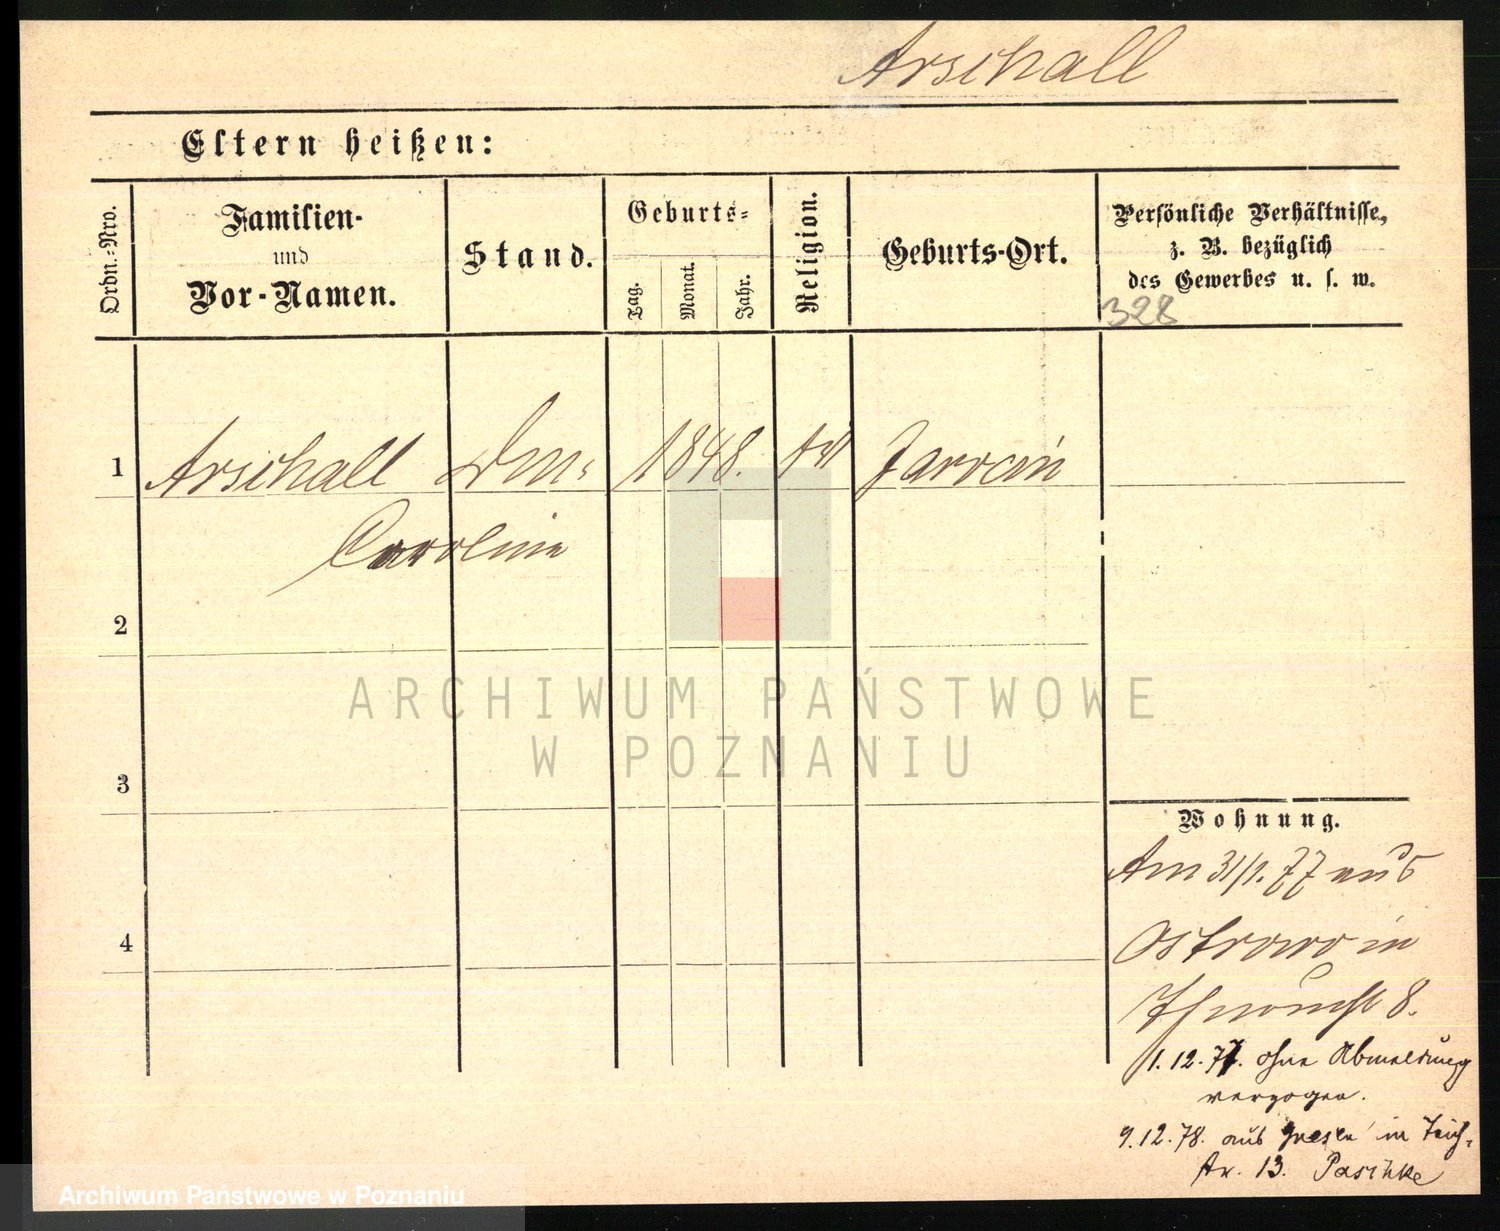 Arschall
Eltern heißen:
Ordn.-Nro.
Familien-
und
Vor-Namen.
Stand.
Geburts-
Tag.
Monat.
Jahr.
Religion.
Geburts-Ort.
Persönliche Verhältnisse,
z. B. bezüglich
des Gewerbes u. s. w.
328
1 Arschall 1848. Jarocin
Caroline
2
3
4
Wohnung.
Am 31/1. 77 aus
Ostrowo in
8.
1.12.77. ohne Abmeldung
verzogen.
9.12.78. aus Gnesen in Teich-
str. 13. Paschke
ARCHIWUM PAŃSTWOWE
W POZNANIU
Archiwum Państwowe w Poznaniu